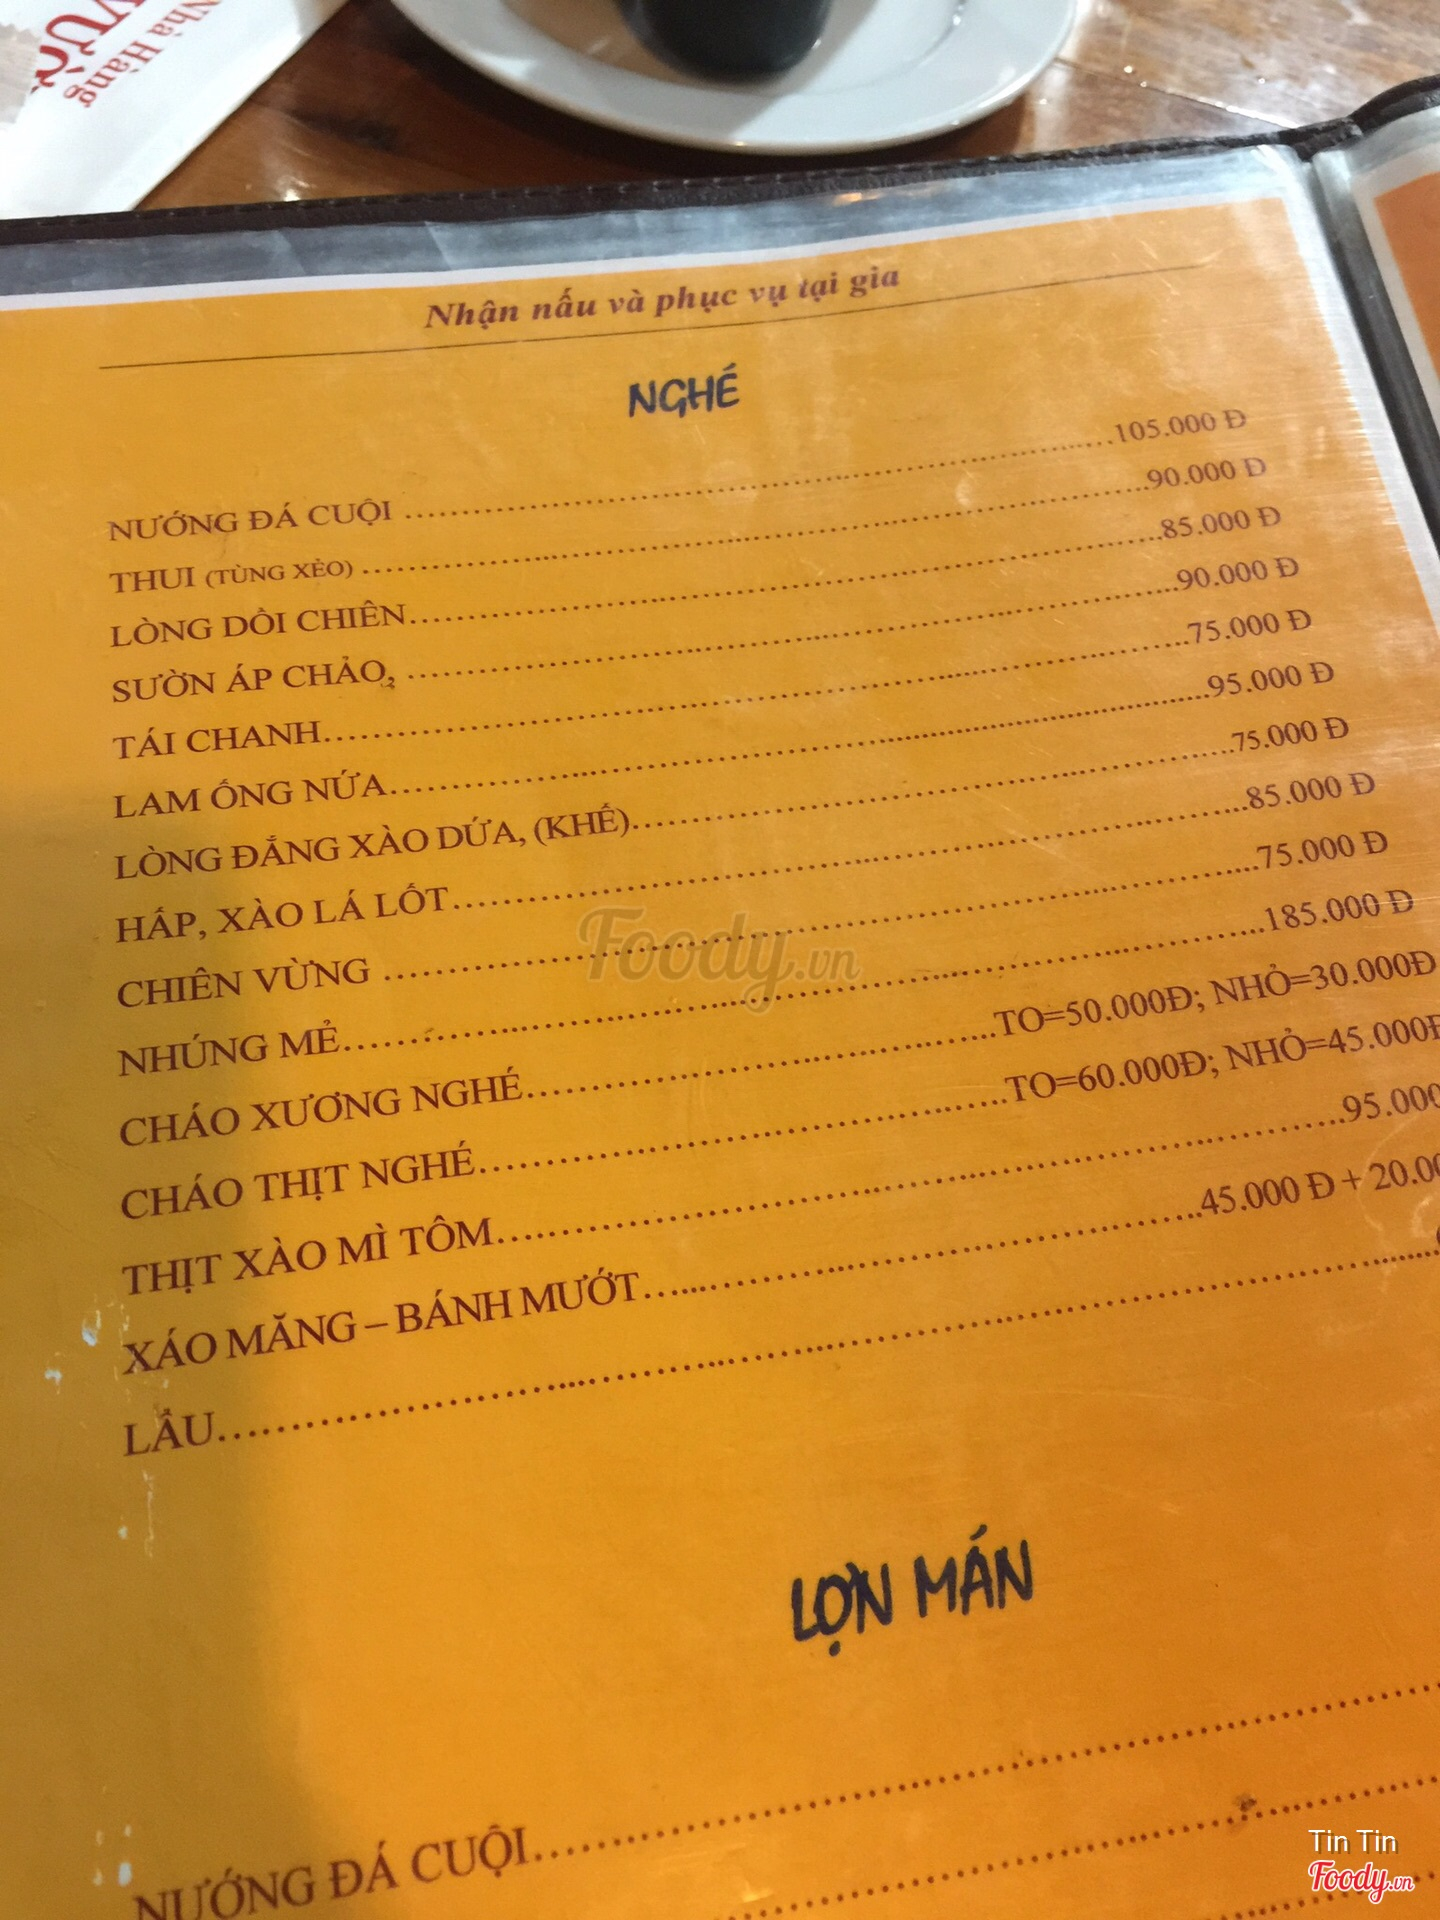 Nhà Hàng
Nhận nấu và phục vụ tại gia
NGHÉ
NƯỚNG ĐÁ CUỘI ..... 105.000 Đ
THUI (TÙNG XẺO) ..... 90.000 Đ
LÒNG DỒI CHIÊN ..... 85.000 Đ
SƯỜN ÁP CHẢO ..... 90.000 Đ
TÁI CHANH ..... 75.000 Đ
LAM ỐNG NỨA ..... 95.000 Đ
LÒNG ĐẮNG XÀO DỨA, (KHẾ) ..... 75.000 Đ
HẤP, XÀO LÁ LỐT ..... 85.000 Đ
CHIÊN VỪNG ..... 75.000 Đ
NHÚNG MẺ ..... 185.000 Đ
CHÁO XƯƠNG NGHÉ ..... TO=50.000Đ; NHỎ=30.000Đ
CHÁO THỊT NGHÉ ..... TO=60.000Đ; NHỎ=45.000Đ
THỊT XÀO MÌ TÔM ..... 95.000
XÁO MĂNG – BÁNH MƯỚT ..... 45.000 Đ + 20.00
LẨU .....
LỢN MÁN
NƯỚNG ĐÁ CUỘI .....
Foody.vn
Tin Tin
Foody.vn